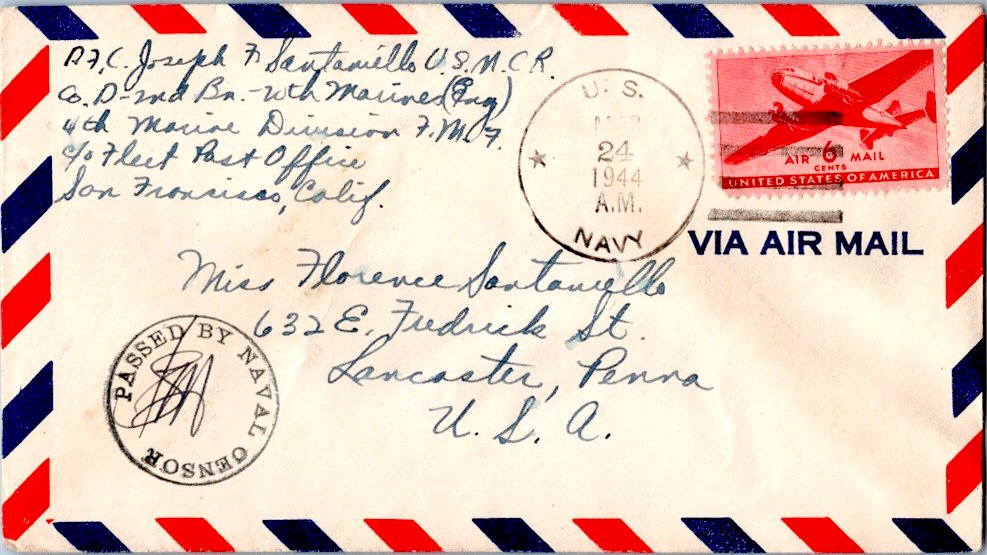 P.F.C. Joseph F. Santaniello U.S.M.C.R.
Co. D-2nd Bn.-20th Marines (Eng)
4th Marine Division F.M.F.
c/o Fleet Post Office
San Francisco, Calif.
U. S.
MAR
24
1944
A.M.
NAVY
AIR 6 MAIL
CENTS
UNITED STATES OF AMERICA
VIA AIR MAIL
Miss Florence Santaniello
632 E. Fredrick St.
Lancaster, Penna
U. S. A.
PASSED BY NAVAL CENSOR